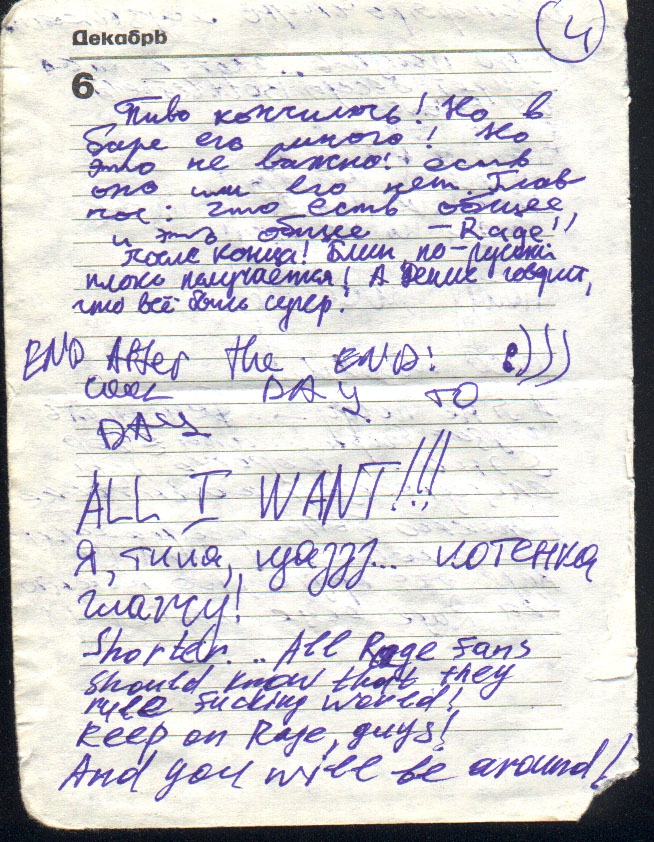 Декабрь
4
6
Пиво кончилось! Но в
баре его много! Но
это не важно! есть
оно или его нет. Глав
ное: что есть общее
и это общее – Rage!!
После конца! Блин, по-русски
плохо получается! А Денис говорит,
что всё было супер!
END After the END! :)))
cool DAY TO
DAY
ALL I WANT!!!
Я, типа, щаззз... котенка
глажу!
Shorter... All Rage Fans
should know that they
rule fucking world!
Keep on Rage, guys!
And you will be around!